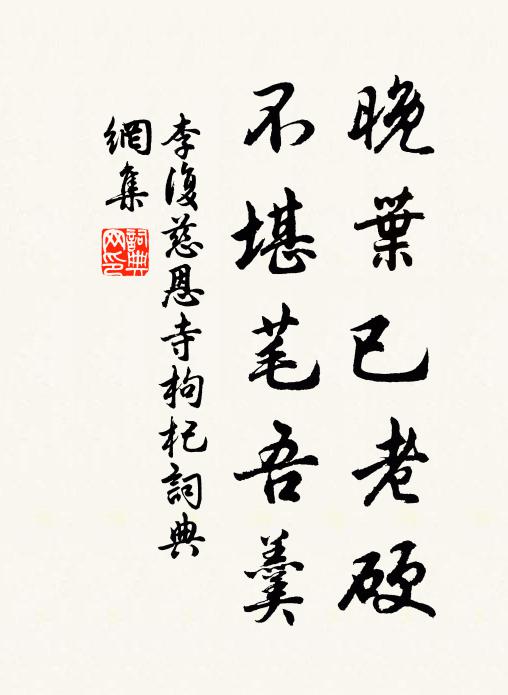 晚葉已老硬
不堪芼吾羹
李復慈恩寺枸杞詞典
網集
詞典網印